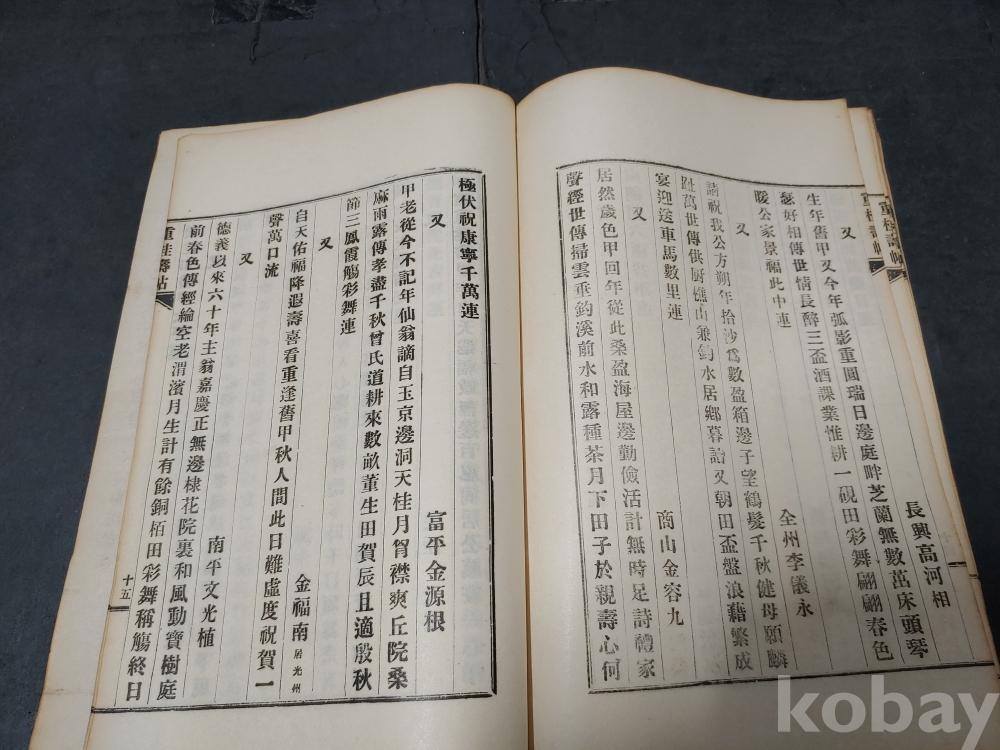 重桂壽帖
又
長興高河相
生年舊甲又今年弧影重圓瑞日邊庭畔芝蘭無數茁床頭琴
瑟好相傳世情長醉三盃酒課業惟耕一硯田彩舞翩翩春色
暖公家景福此中連
又
全州李儀永
請祝我公方朔年拾沙爲數盈箱邊子望鶴髮千秋健母願麟
趾萬世傳供厨樵山兼釣水居鄕暮詣又朝田盃盤浪藉繁成
宴迎送車馬數里連
又
商山金容九
居然歲色甲回年從此桑盈海屋邊勤儉活計無時足詩禮家
聲經世傳掃雲垂釣溪前水和露種茶月下田子於親壽心何
極伏祝康寧千萬連
又
富平金源根
甲老從今不記年仙翁謫自玉京邊洞天桂月胷襟爽丘院桑
麻雨露傳孝盡千秋曾氏道耕來數畝董生田賀辰且適殷秋
節三鳳霞觴彩舞連
又
金福南居光州
自天佑福降遐壽喜看重逢舊甲秋人間此日難虛度祝賀一
聲萬口流
又
南平文光植
德義以來六十年主翁嘉慶正無邊棣花院裏和風動寶樹庭
前春色傳經綸空老渭濱月生計有餘銅栢田彩舞稱觴終日
重桂壽帖
十五
kobay